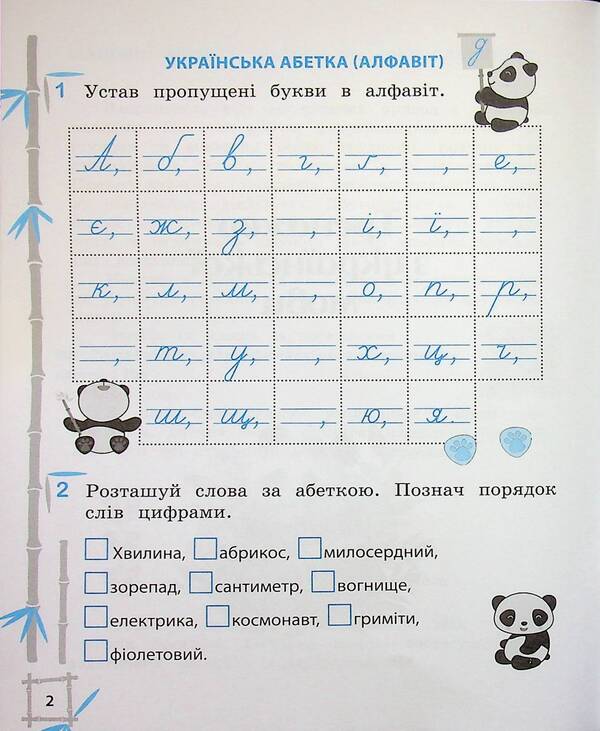 УКРАЇНСЬКА АБЕТКА (АЛФАВІТ)
д
1 Устав пропущені букви в алфавіт.
А, б, в, г, ґ, , е,
є, ж, з, , і, ї, ,
к, л, м, , о, п, р,
, т, у, , х, ц, ч,
ш, щ, , ю, я.
2 Розташуй слова за абеткою. Познач порядок
слів цифрами.
Хвилина, абрикос, милосердний,
зорепад, сантиметр, вогнище,
електрика, космонавт, гриміти,
фіолетовий.
2